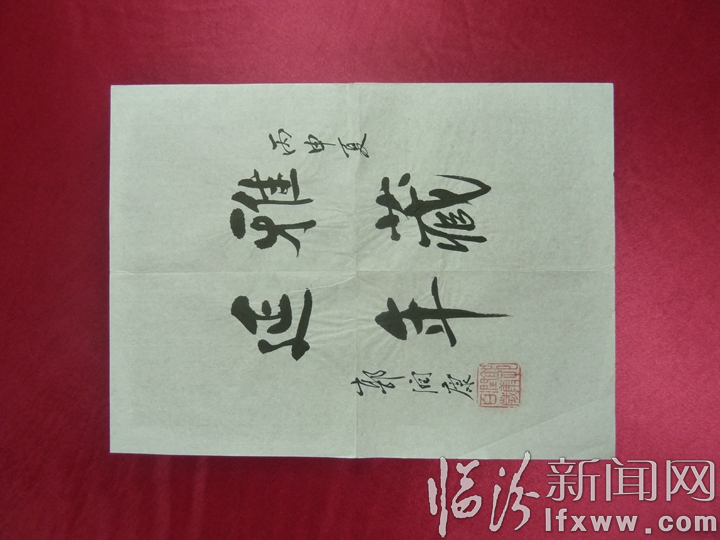 丙申夏
雅藏
延年
郭润康
临汾新闻网
lfxww.com